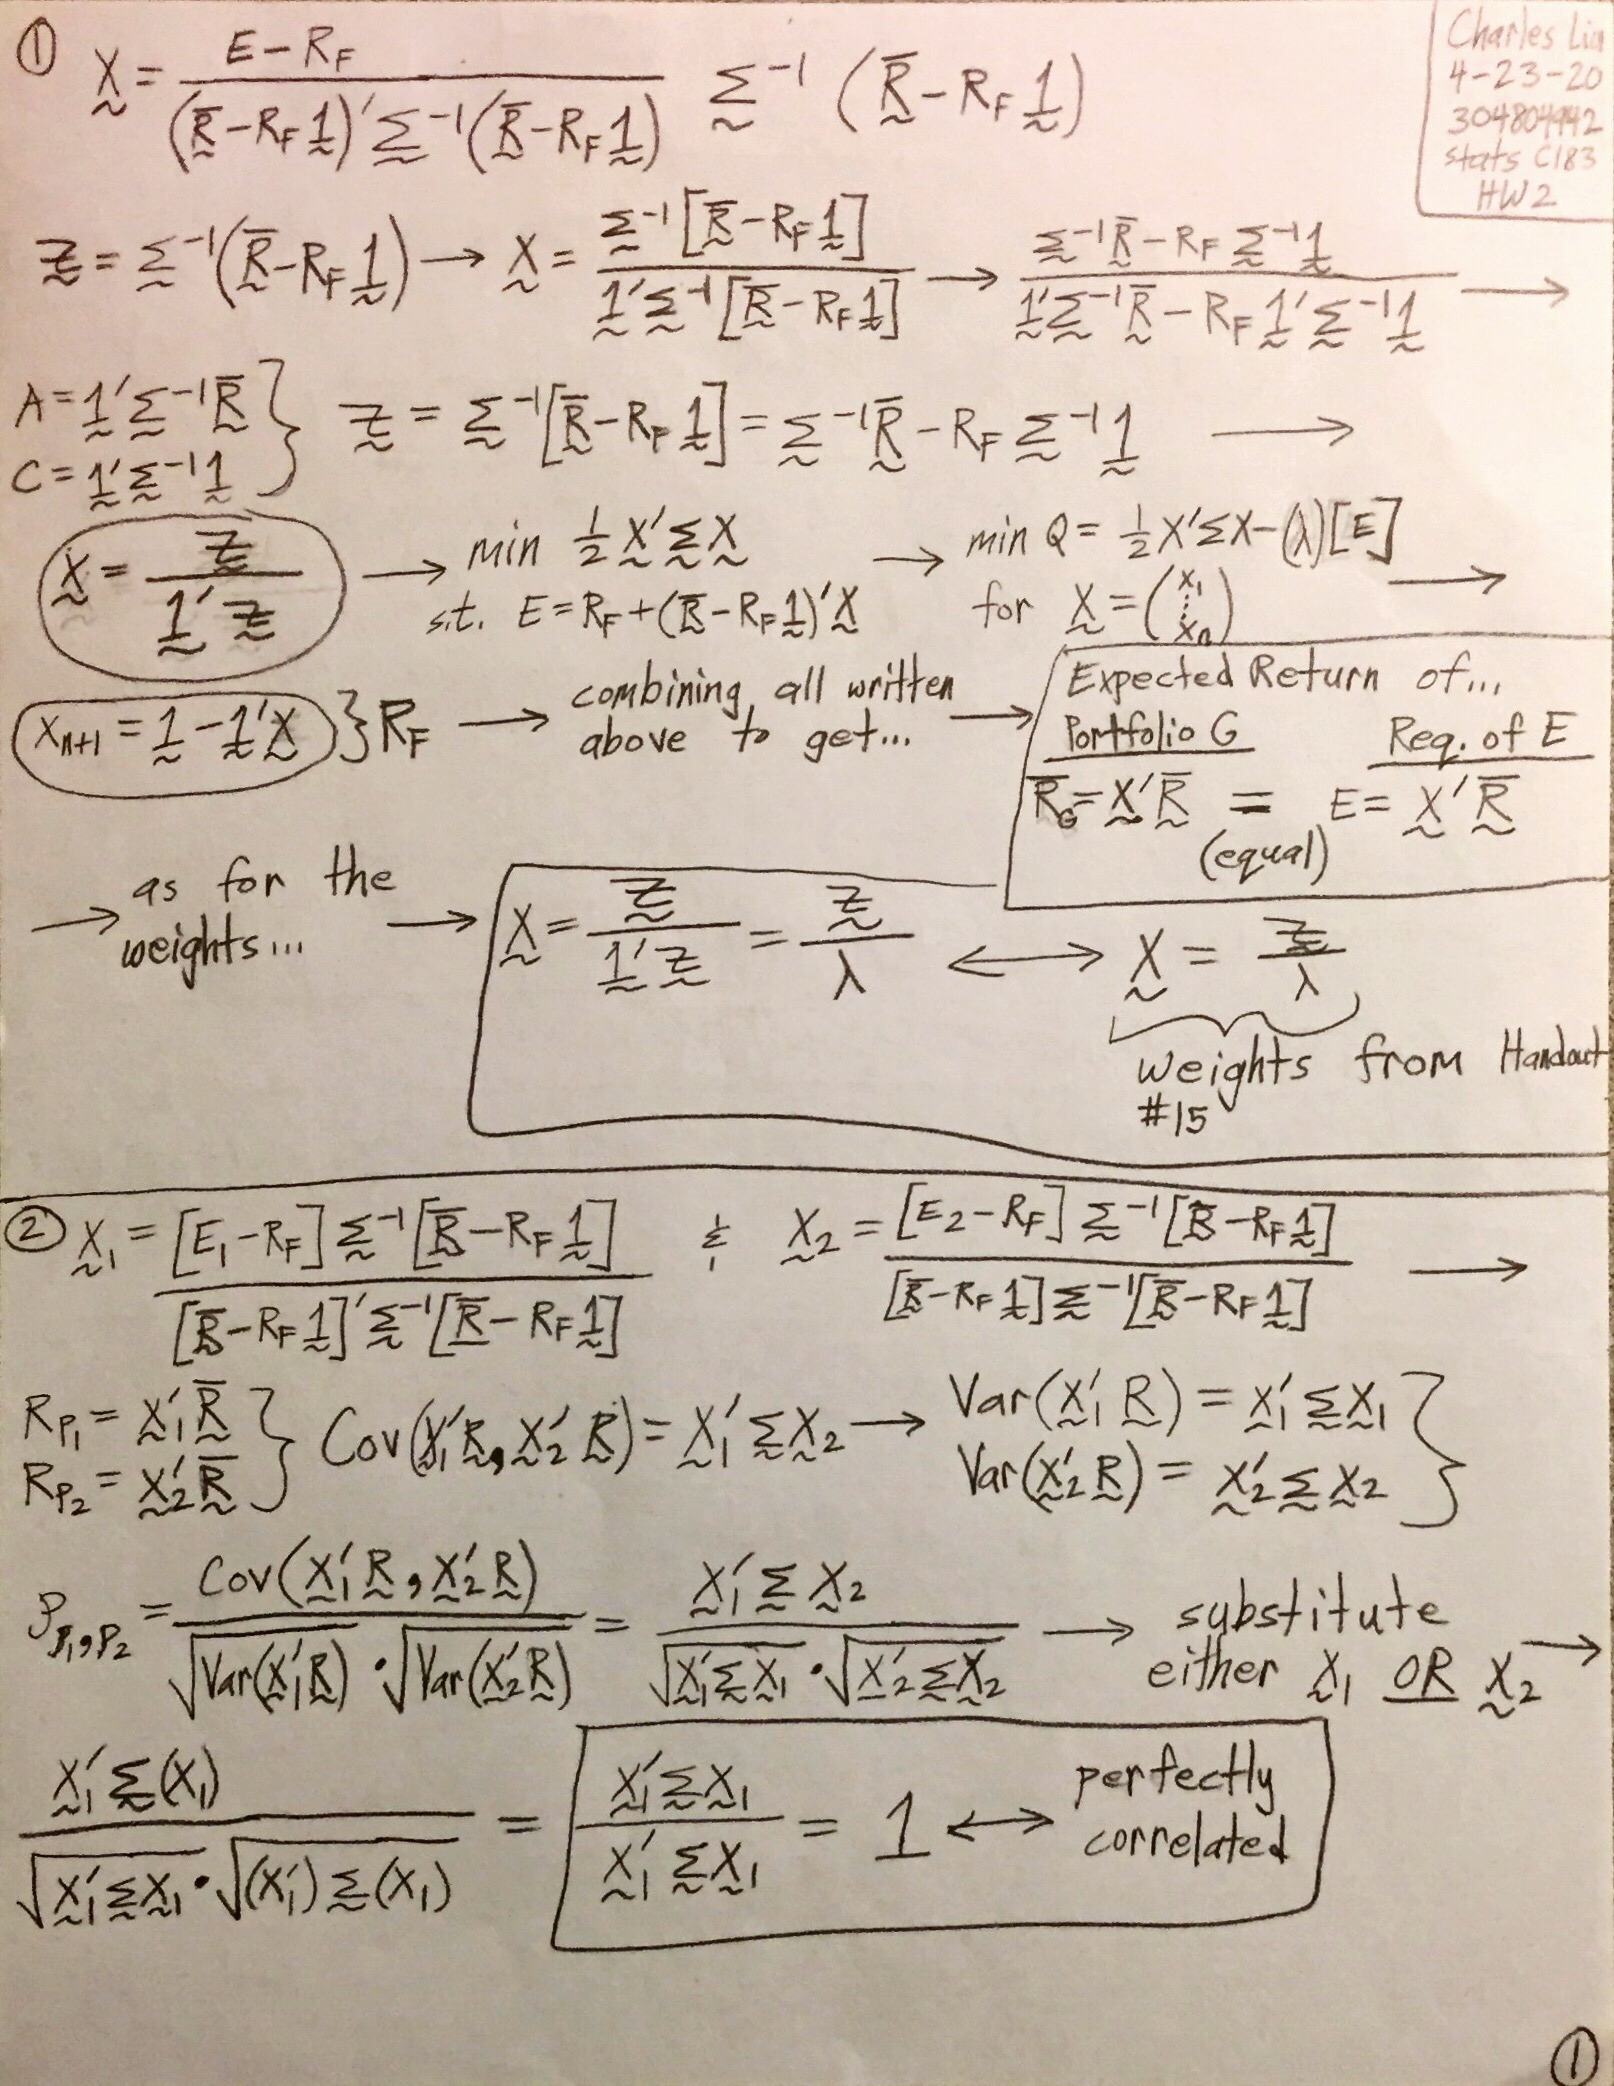 ① X̰ = (E − R_F) / ((R̰̄ − R_F 1̰)′ Σ̰⁻¹ (R̰̄ − R_F 1̰)) Σ̰⁻¹ (R̰̄ − R_F 1̰)
Charles
4-23-20
304804942
stats C183
HW2
Z̰ = Σ̰⁻¹(R̰̄ − R_F 1̰) → X̰ = Σ̰⁻¹[R̰̄ − R_F 1̰] / 1̰′Σ̰⁻¹[R̰̄ − R_F 1̰] → (Σ̰⁻¹R̰̄ − R_F Σ̰⁻¹1̰) / (1̰′Σ̰⁻¹R̰̄ − R_F 1̰′Σ̰⁻¹1̰) →
A = 1̰′Σ̰⁻¹R̰̄
C = 1̰′Σ̰⁻¹1̰ } Z̰ = Σ̰⁻¹[R̰̄ − R_F 1̰] = Σ̰⁻¹R̰̄ − R_F Σ̰⁻¹1̰ →
X̰ = Z̰ / 1̰′Z̰ → min ½ X̰′Σ̰X̰ → min Q = ½X′ΣX − (λ)[E]
s.t. E = R_F + (R̰̄ − R_F 1̰)′X̰ for X̰ = (x₁ ⋮ xₙ) →
xₙ₊₁ = 1̰ − 1̰′X̰ } R_F → combining all written
above to get... →
Expected Return of...
Portfolio G Req. of E
R̄_G = X̰′R̰̄ = E = X̰′R̰̄
(equal)
→ as for the
weights... → X̰ = Z̰ / 1̰′Z̰ = Z̰ / λ ↔ X̰ = Z̰ / λ
weights from Handout
#15
② X̰₁ = [E₁ − R_F] Σ̰⁻¹ [R̰̄ − R_F 1̰] / [R̰̄ − R_F 1̰]′Σ̰⁻¹[R̰̄ − R_F 1̰] & X̰₂ = [E₂ − R_F] Σ̰⁻¹ [R̰̄ − R_F 1̰] / [R̰̄ − R_F 1̰]Σ̰⁻¹[R̰̄ − R_F 1̰] →
R_P₁ = X̰₁′R̰̄
R_P₂ = X̰₂′R̰̄ } Cov(X̰₁′R̰, X̰₂′R̰) = X̰₁′Σ̰X̰₂ → Var(X̰₁′R̰) = X̰₁′Σ̰X̰₁
Var(X̰₂′R̰) = X̰₂′Σ̰X̰₂ }
ρ_P₁,P₂ = Cov(X̰₁′R̰, X̰₂′R̰) / √Var(X̰₁′R̰) · √Var(X̰₂′R̰) = X̰₁′Σ̰X̰₂ / √X̰₁′Σ̰X̰₁ · √X̰₂′Σ̰X̰₂ → substitute
either X̰₁ OR X̰₂ →
X̰₁′Σ̰(X₁) / √X̰₁′Σ̰X̰₁ · √(X₁′)Σ̰(X₁) = X̰₁′Σ̰X̰₁ / X̰₁′Σ̰X̰₁ = 1 ↔ perfectly
correlated
①